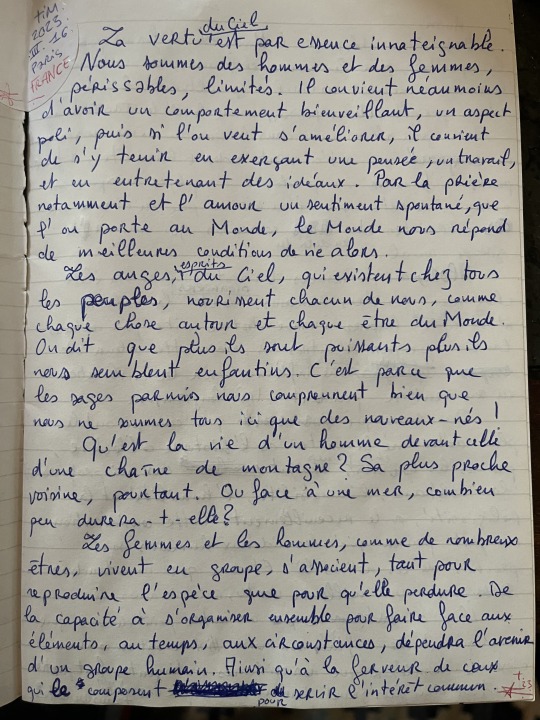 TIM.
2023.
III. 16
Paris
FRANCE
du Ciel
La vertu est par essence innateignable.
Nous sommes des hommes et des femmes,
périssables, limités. Il convient néaumoins
d'avoir un comportement bienveillant, un aspect
poli, puis si l'on veut s'améliorer, il convient
de s'y tenir en exerçant une pensée, un travail,
et en entretenant des idéaux. Par la prière
notamment et l'amour un sentiment spontané, que
l'on porte au Monde, le Monde nous répond
de meilleures conditions de vie alors.
esprits
Les anges, du Ciel, qui existent chez tous
les peuples, nourissent chacun de nous, comme
chaque chose autour et chaque être du Monde.
On dit que plus ils sont puissants plus ils
nous semblent enfantins. C'est parce que
les sages parmis nous comprennent bien que
nous ne sommes tous ici que des nouveaux-nés !
Qu'est la vie d'un homme devant celle
d'une chaîne de montagne ? Sa plus proche
voisine, pourtant. Ou face à une mer, combien
peu durera-t-elle ?
Les femmes et les hommes, comme de nombreux
êtres, vivent en groupe, s'associent, tant pour
reproduire l'espèce que pour qu'elle perdure. De
la capacité à s'organiser ensemble pour faire face aux
éléments, au temps, aux circonstances, dépendra l'avenir
d'un groupe humain. Ainsi qu'à la ferveur de ceux
qui le composent pour servir l'intérêt commun.